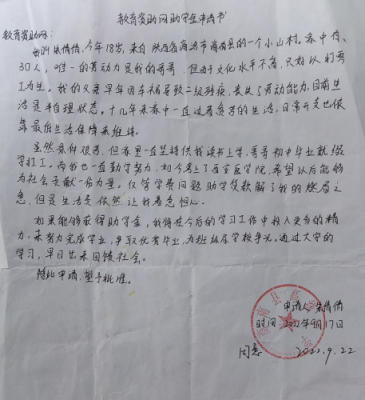 教育资助网助学金申请书
教育资助网：
我叫朱倩倩，今年18岁，来自陕西省商洛市商南县的一个小山村。家中有
30人，唯一的劳动力是我的哥哥，但由于文化水平不高，只好以打零
工为生。我的父亲早年因车祸导致二级残疾，丧失了劳动能力，目前生
活是半自理状态。十几年来家中一直过着贫苦的生活，日常开支也依
靠最低生活保障来维持。
虽然条件很差，但家里一直坚持供我读书上学，哥哥初中毕业就辍
学打工。而我也一直勤学努力，如今考上了西安医学院，希望以后能够
为社会贡献一份力量。仅管学费问题助学贷款解了我的燃眉之
急，但是生活费依然让我着急担心。
如果能够获得助学金，我将在今后的学习工作中投入更多的精
力，来努力完成学业，争取优秀毕业，为班级为学校争光。通过大学的
学习，早日出来回馈社会。
特此申请，望予批准。
申请人：朱倩倩
时间：2022年9月17日
同意 2022.9.22